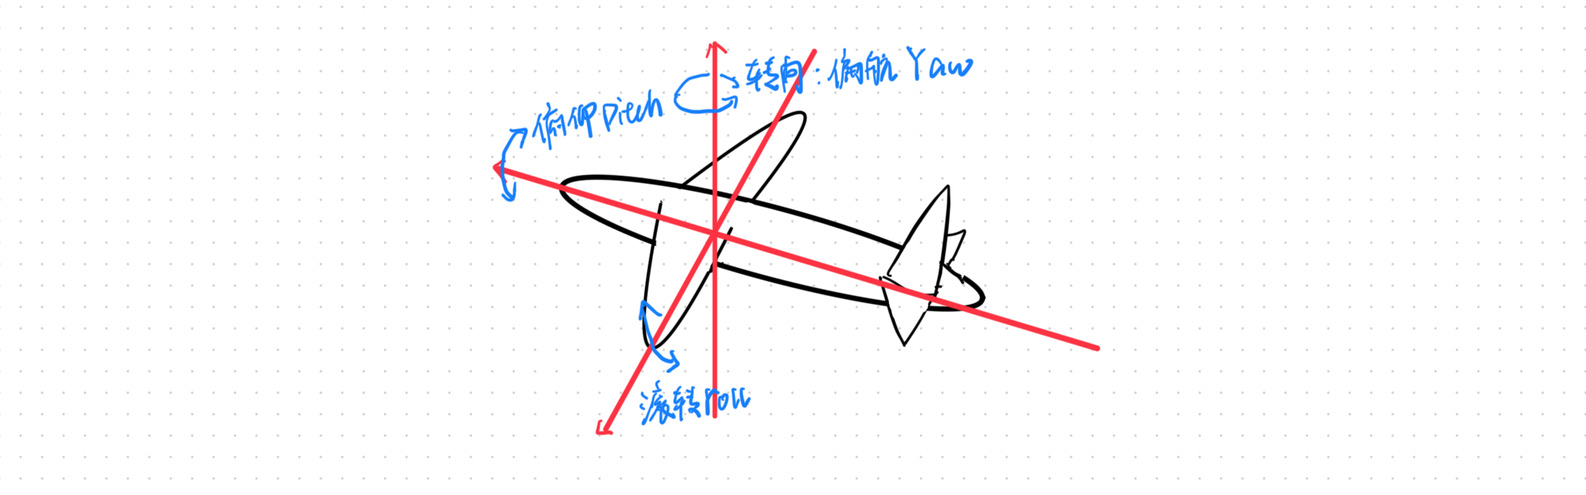 转向：偏航 Yaw
俯仰 Pitch
滚转 roll